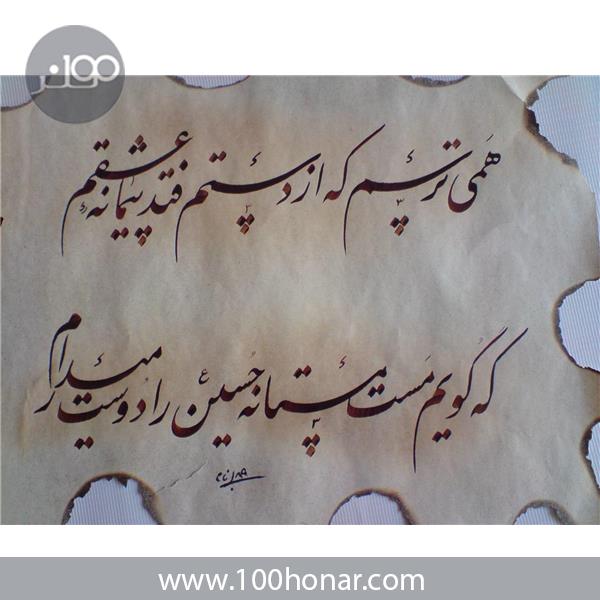 ۱۰۰هنر
همی ترسم که از دستم فتد پیمانه عشقم
که گویم مست مستانه حسین را دوست میدارم
www.100honar.com